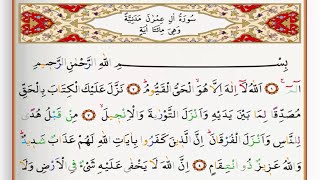 سُورَةُ اٰلِ عِمْرٰنَ مَدَنِيَّةٌ
وَهِيَ مِائَتَا اٰيَةٍ
بِسْــــــمِ اللّٰهِ الرَّحْمٰنِ الرَّحِيمِ
الٓمٓ ۝١ اَللّٰهُ لَٓا اِلٰهَ اِلَّا هُوَ الْحَيُّ الْقَيُّومُ ۝ نَزَّلَ عَلَيْكَ الْكِتَابَ بِالْحَقِّ
مُصَدِّقًا لِمَا بَيْنَ يَدَيْهِ وَاَنْزَلَ التَّوْرٰيةَ وَالْاِنْجِيلَ ۝ مِنْ قَبْلُ هُدًى
لِلنَّاسِ وَاَنْزَلَ الْفُرْقَانَ اِنَّ الَّذِينَ كَفَرُوا بِاٰيَاتِ اللّٰهِ لَهُمْ عَذَابٌ شَدِيدٌ
وَاللّٰهُ عَزِيزٌ ذُو انْتِقَامٍ ۝ اِنَّ اللّٰهَ لَا يَخْفٰى عَلَيْهِ شَيْءٌ فِي الْاَرْضِ وَلَا